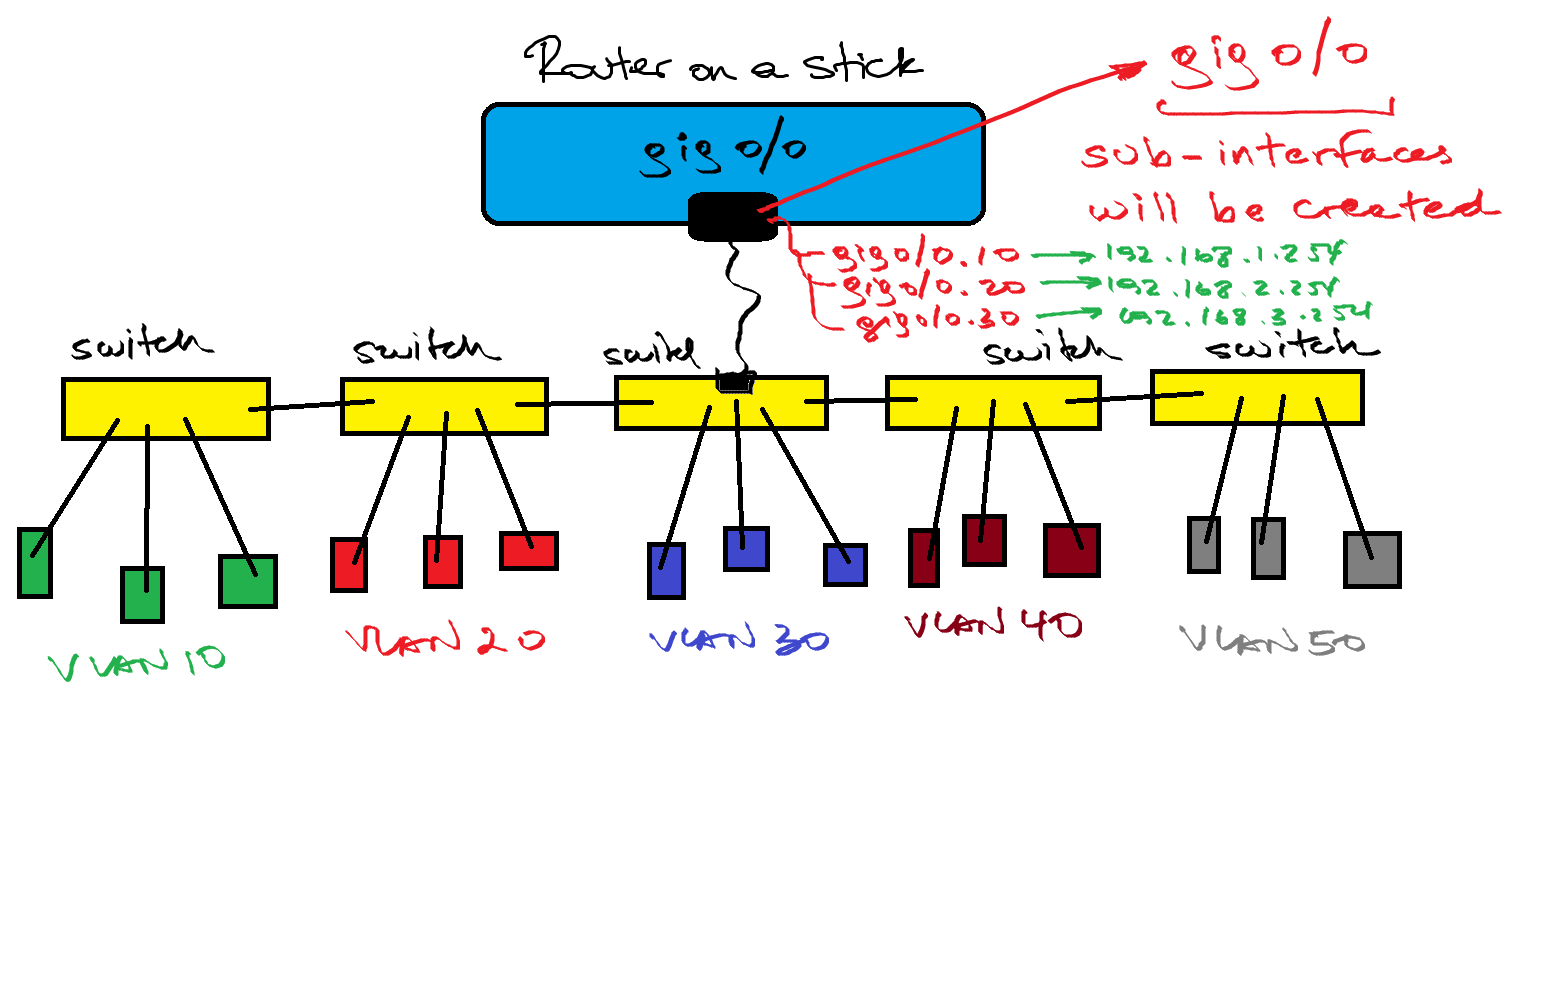 Router on a stick
gig 0/0
gig 0/0
sub-interfaces
will be created
gig 0/0.10 → 192.168.1.254
gig 0/0.20 → 192.168.2.254
gig 0/0.30 → 192.168.3.254
switch
switch
switch
switch
switch
VLAN 10
VLAN 20
VLAN 30
VLAN 40
VLAN 50